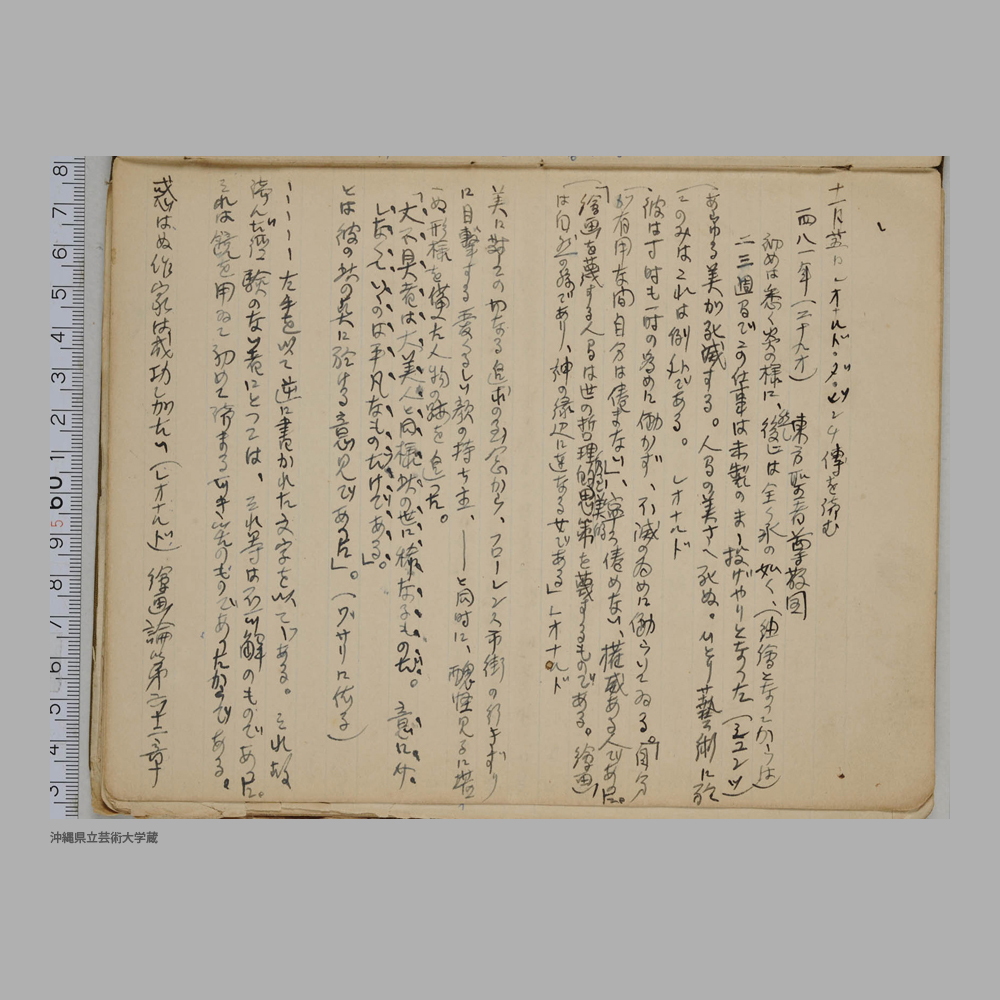 十一月廿五日レオナルド・ダ・ビンチ傳を読む
一四八一年(二十九才) 東方聖者尊敬図
初めは悉く炎の様に、後には全く氷の如く、(油繪となってからは)
二三週間でこの仕事は未製のまゝ投げやりとなった(ミュンツ)
「あらゆる美が死滅する。人間の美さへ死ぬ。ひとり藝術に於
てのみはこれは例外である。 レオナルド
彼は寸時も一時の為めに働かず、不滅の為めに働らいてゐる。「自分
が有用な間自分は倦まない」、寧ろ倦めない、権威ある人である。
「繪画を蔑する人間は世の哲理的思弁を蔑するものである。繪画
は自然の孫であり、神の縁辺に連なる女である」レオナルド
美に対しての切なる追求の念から、フローレンス市街の行きずり
に目撃する愛くるしい顔の持ち主、――と同時に、醜怪見るに堪へ
ぬ形様を備へた人物の跡を追った。
「大不具者は大美人と同様状の世に稀なるものだ。意に介
しなくていゝのは平凡なものだけである。」
とは彼の共の英に於ける意見であった」。(ヴサリに依る)
――――左手を以て逆に書かれた文字を以てゞある。それ故
読んだ経験のない者にとっては、これ等は不可解のものであった。
それは鏡を用ゐて初めて読まるべき筈のものであったからである。
惑はぬ作家は成功しがたい(レオナルド) 繪画論第六十二章
沖縄県立芸術大学蔵